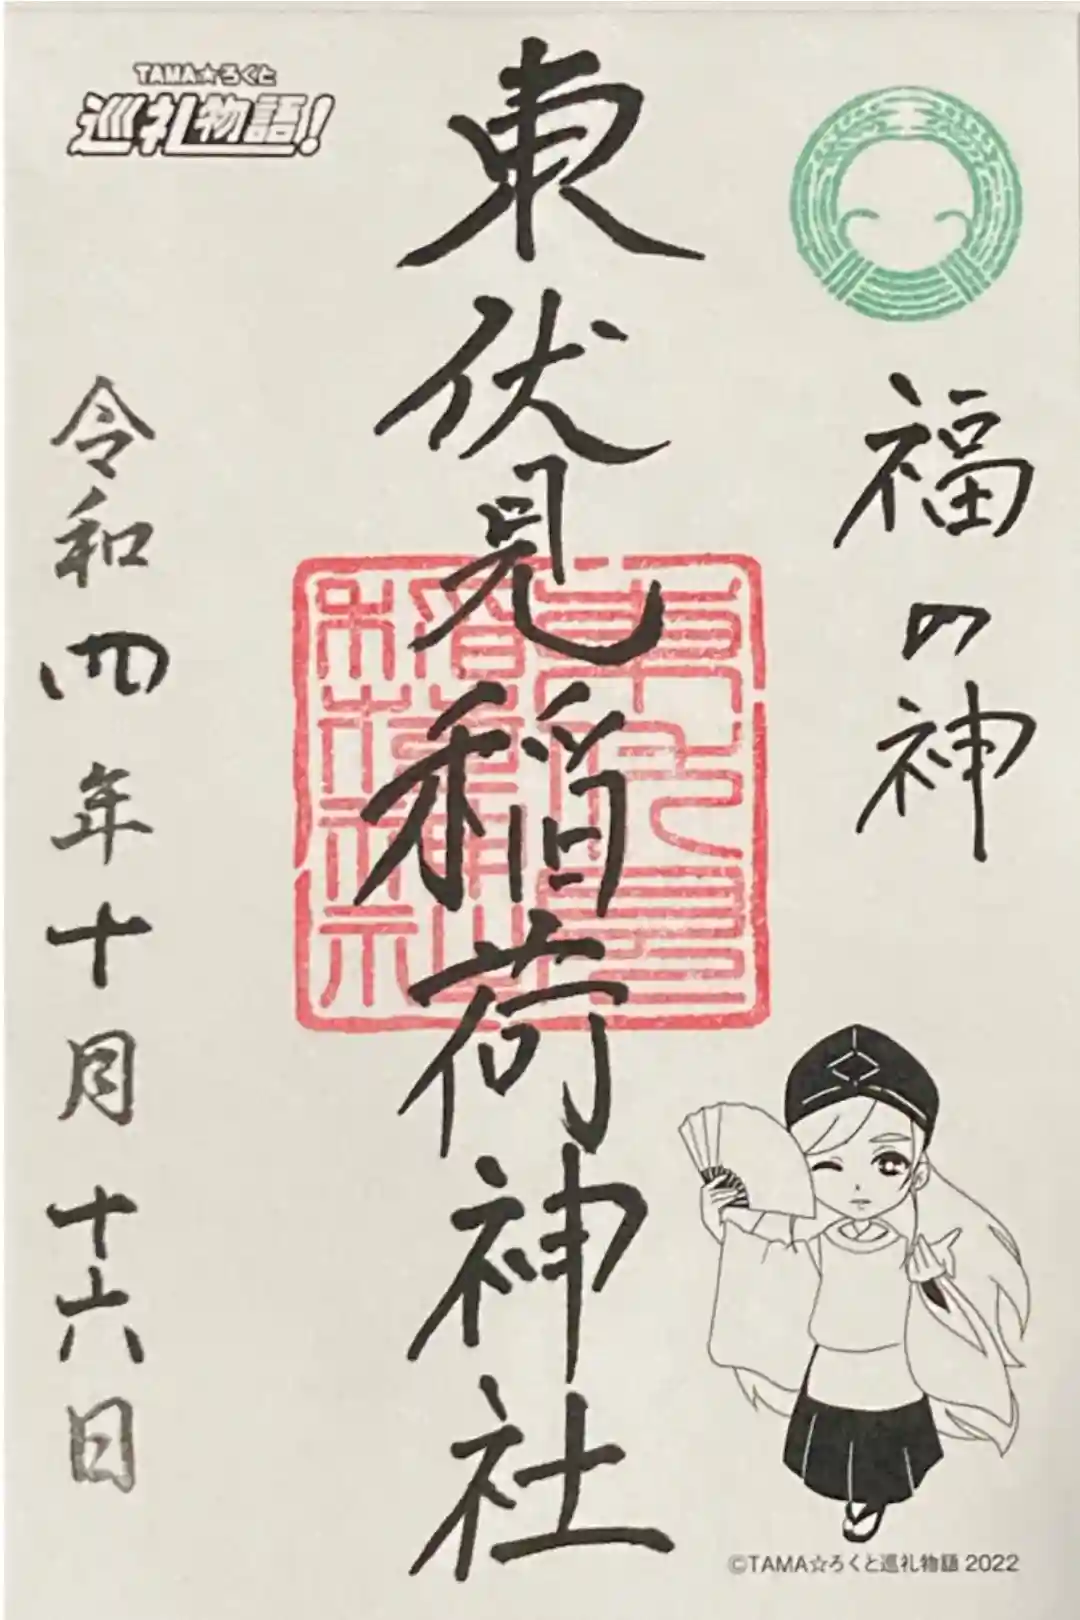 TAMA☆ろくと
巡礼物語!
福の神
東伏見稲荷神社
令和四年十月十六日
©TAMA☆ろくと巡礼物語 2022